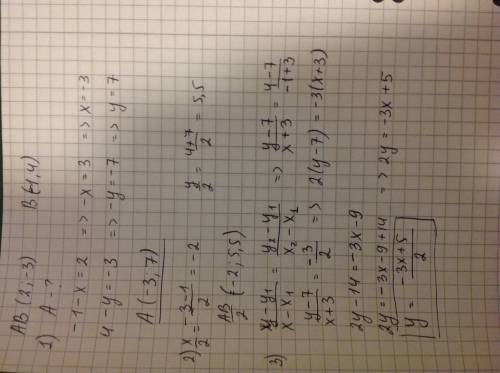 AB (2; -3)   B(-1, 4)
1) A - ?
-1 - x = 2 => -x = 3 => x = -3
4 - y = -3 => -y = -7 => y = 7
A (-3, 7)
2) x/2 = (-3-1)/2 = -2   y/2 = (4+7)/2 = 5,5
AB/2 (-2; 5,5)
3) (y-y₁)/(x-x₁) = (y₂-y₁)/(x₂-x₁) => (y-7)/(x+3) = (4-7)/(-1+3)
(y-7)/(x+3) = -3/2 => 2(y-7) = -3(x+3)
2y - 14 = -3x - 9
2y = -3x - 9 + 14 => 2y = -3x + 5
y = (-3x+5)/2